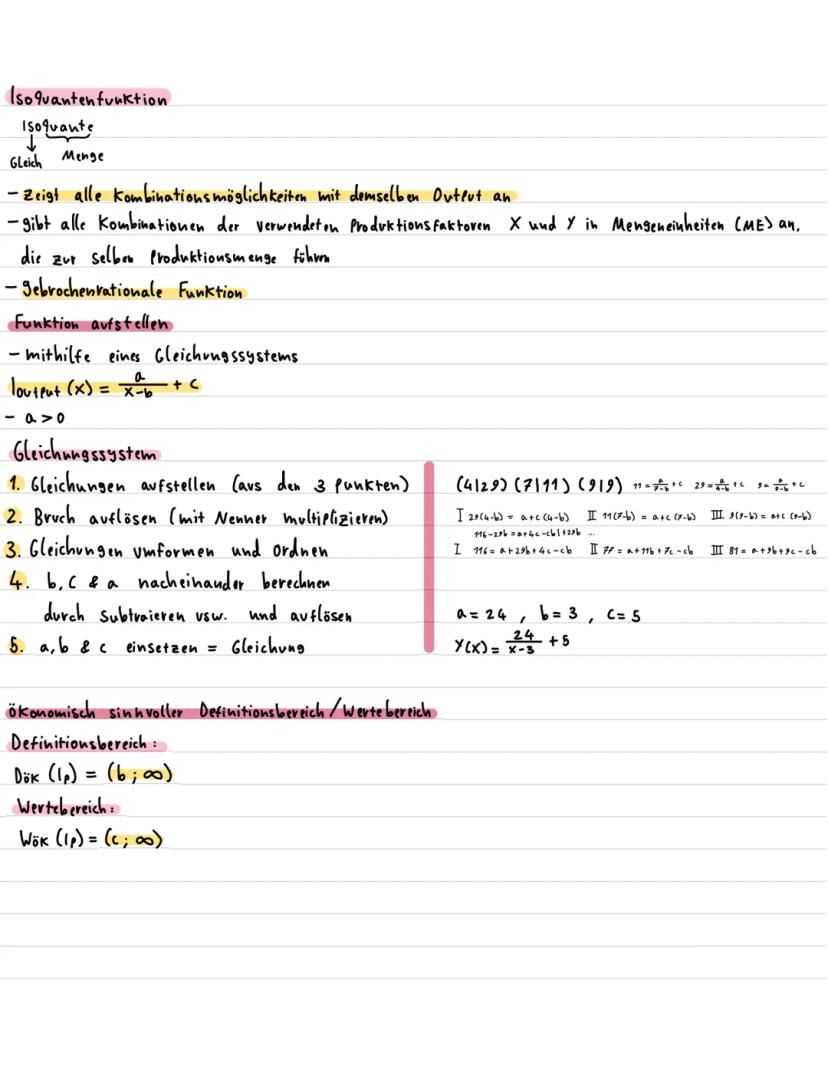 Isoquantenfunktion
Isoquante
Gleich Menge
- zeigt alle Kombinationsmöglichkeiten mit demselben Output an
- gibt alle Kombinationen der verwendeten Produktionsfaktoren X und Y in Mengeneinheiten (ME) an,
die zur selben Produktionsmenge führen
- gebrochenrationale Funktion
Funktion aufstellen
- mithilfe eines Gleichungssystems
Ioutput (x) = a/(x-b) + c
- a > 0
Gleichungssystem
1. Gleichungen aufstellen (aus den 3 Punkten)
2. Bruch auflösen (mit Nenner multiplizieren)
3. Gleichungen umformen und ordnen
4. b, c & a nacheinander berechnen
durch Subtraieren usw. und auflösen
5. a, b & c einsetzen = Gleichung
(4|29) (7|11) (9|9) 11 = a/(7-b) + c 29 = a/(4-b) + c 9 = a/(9-b) + c
I 29(4-b) = a+c (4-b) II 11(7-b) = a+c (7-b) III 9(9-b) = a+c (9-b)
116-29b = a+4c-cb | +29b ...
I 116 = a+29b+4c-cb II 77 = a+11b+7c-cb III 81 = a+9b+9c-cb
a = 24 , b = 3 , c = 5
Y(x) = 24/(x-3) + 5
ökonomisch sinnvoller Definitionsbereich / Wertebereich
Definitionsbereich :
Dök (Ip) = (b ; ∞)
Wertebereich :
Wök (Ip) = (c ; ∞)